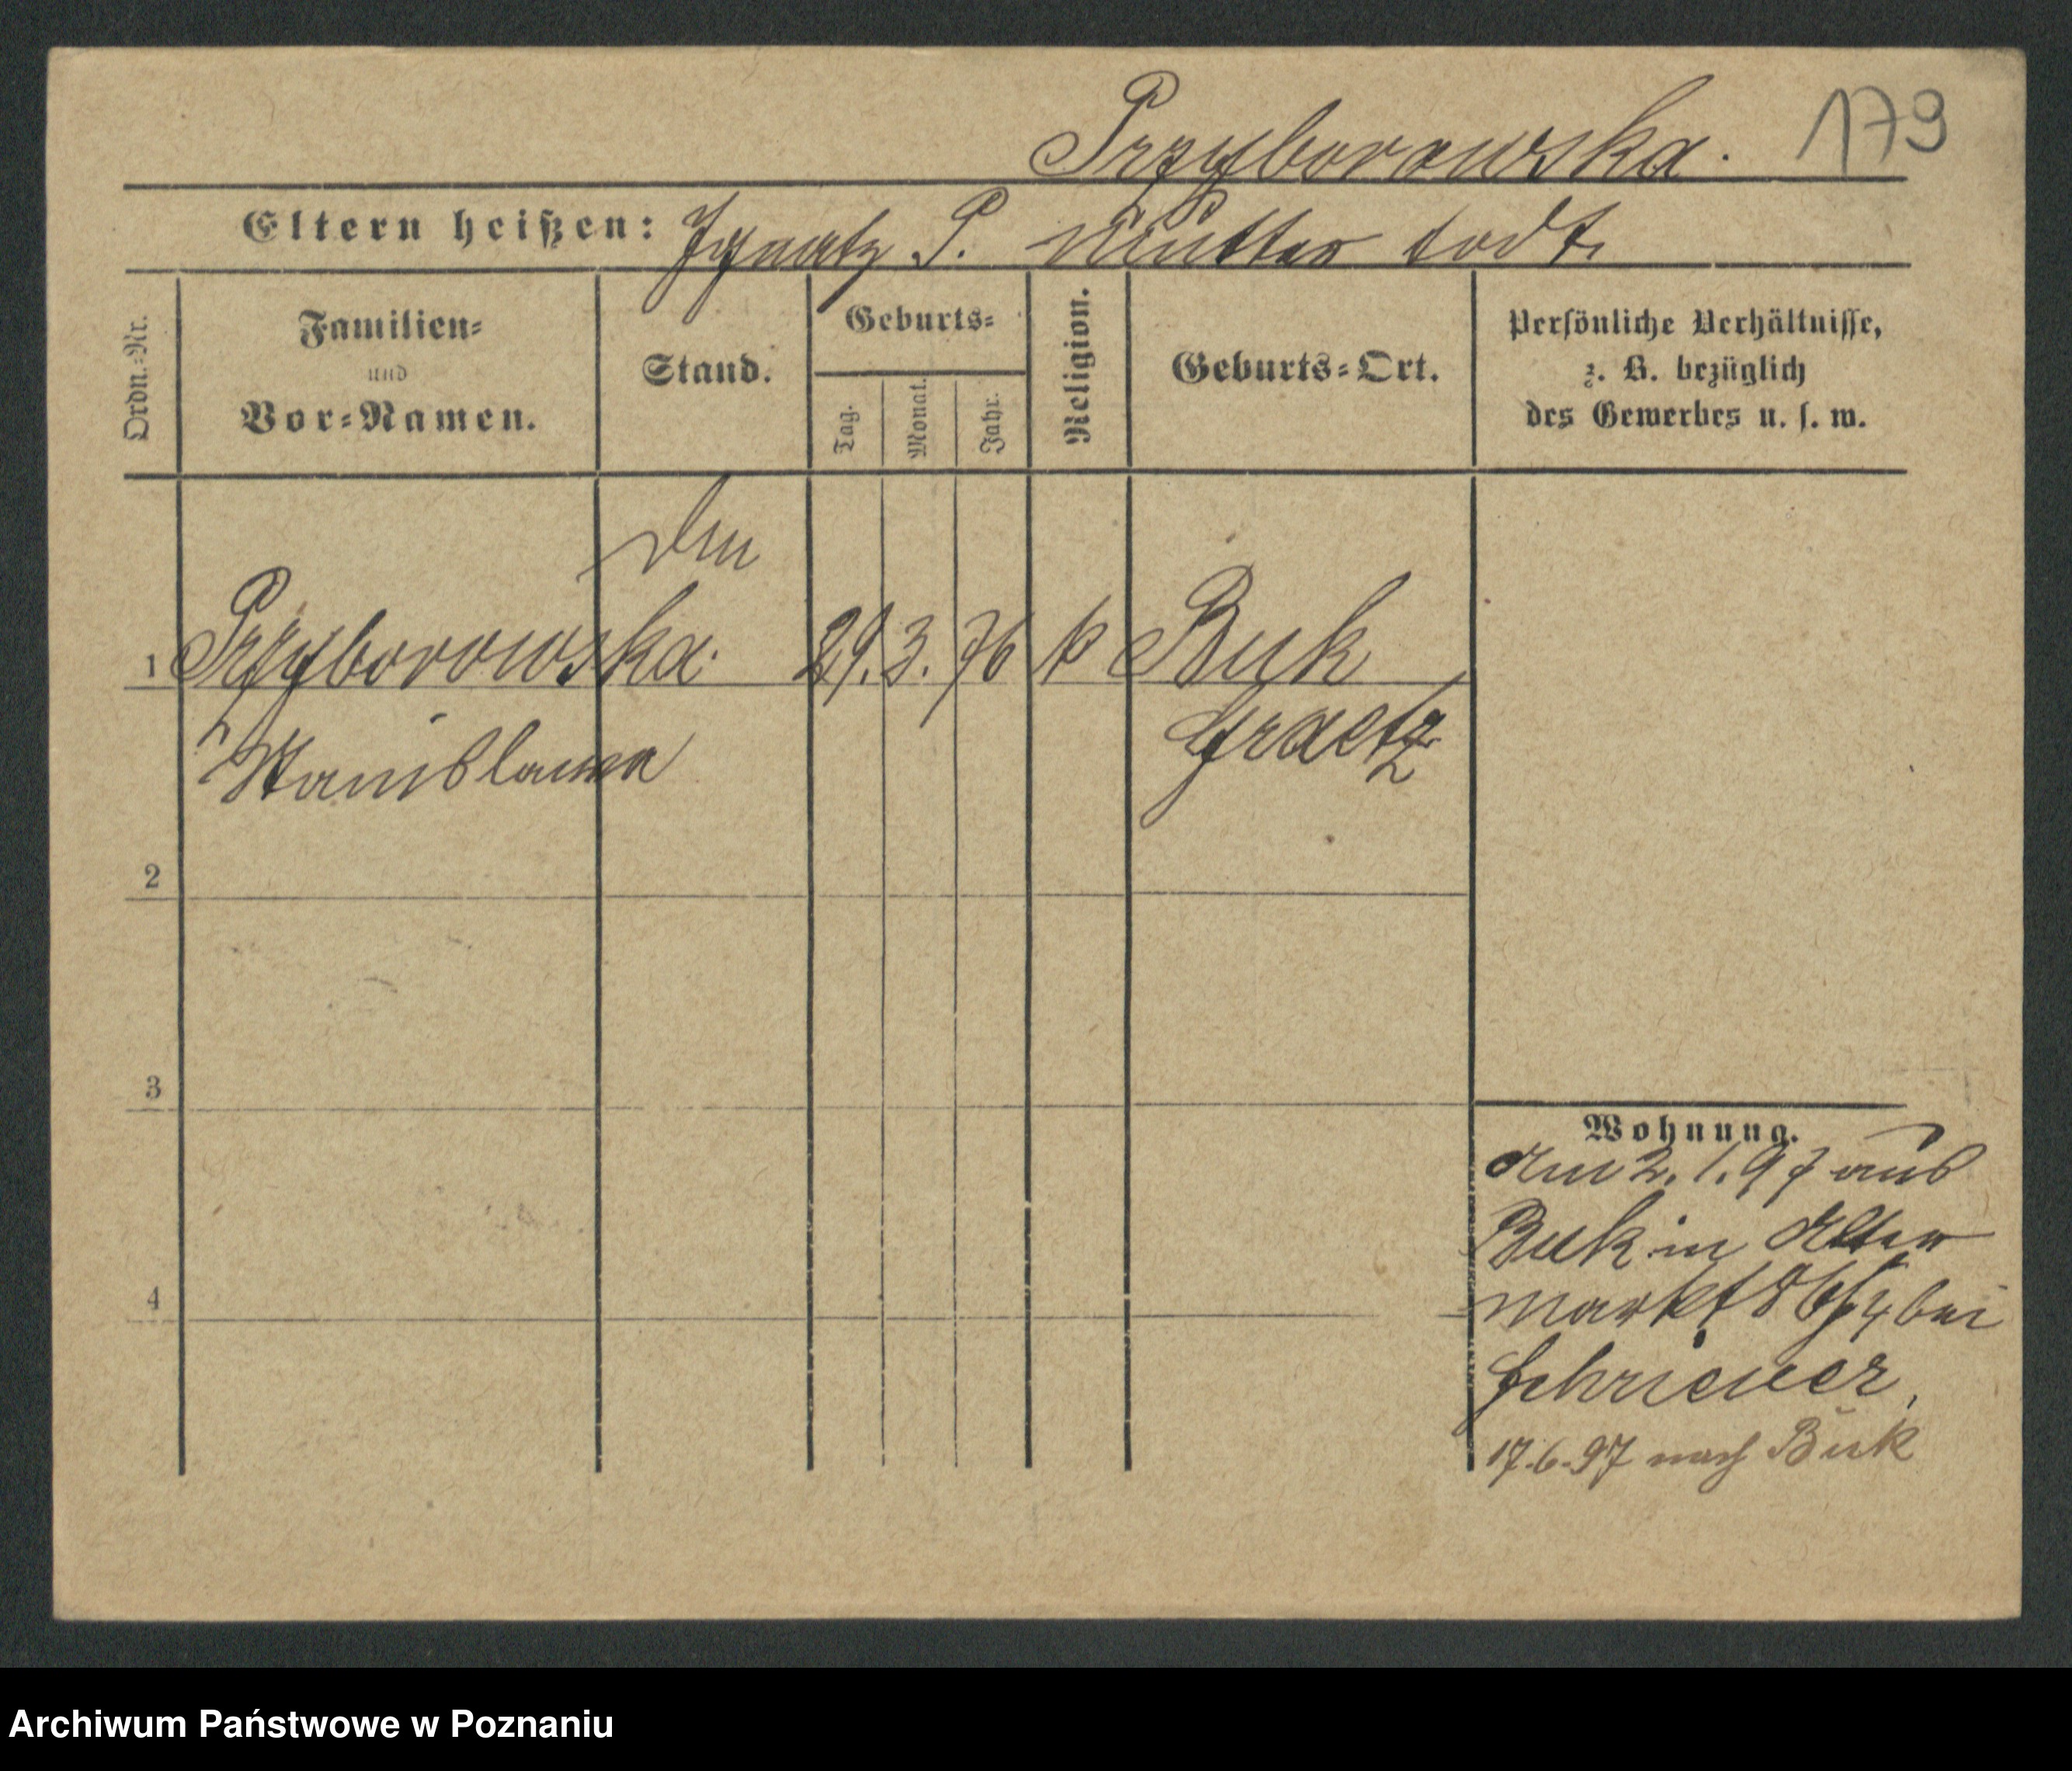 Przyborowska. 179
Eltern heißen: Ignatz P. Mutter todt.
Ordn.=Nr.
Familien=
und
Vor=Namen.
Stand.
Geburts=
Tag.
Monat.
Jahr.
Religion.
Geburts=Ort.
Persönliche Verhältnisse,
z. B. bezüglich
des Gewerbes u. s. w.
1 Przyborowska. 29. 3. 76 k Buk
Stanislawa Graetz
2
3
4
Wohnung.
Am 2. 1. 97 aus
Buk in Alter
markt 86 bei
Schriewer,
17.6.97 nach Buk
Archiwum Państwowe w Poznaniu